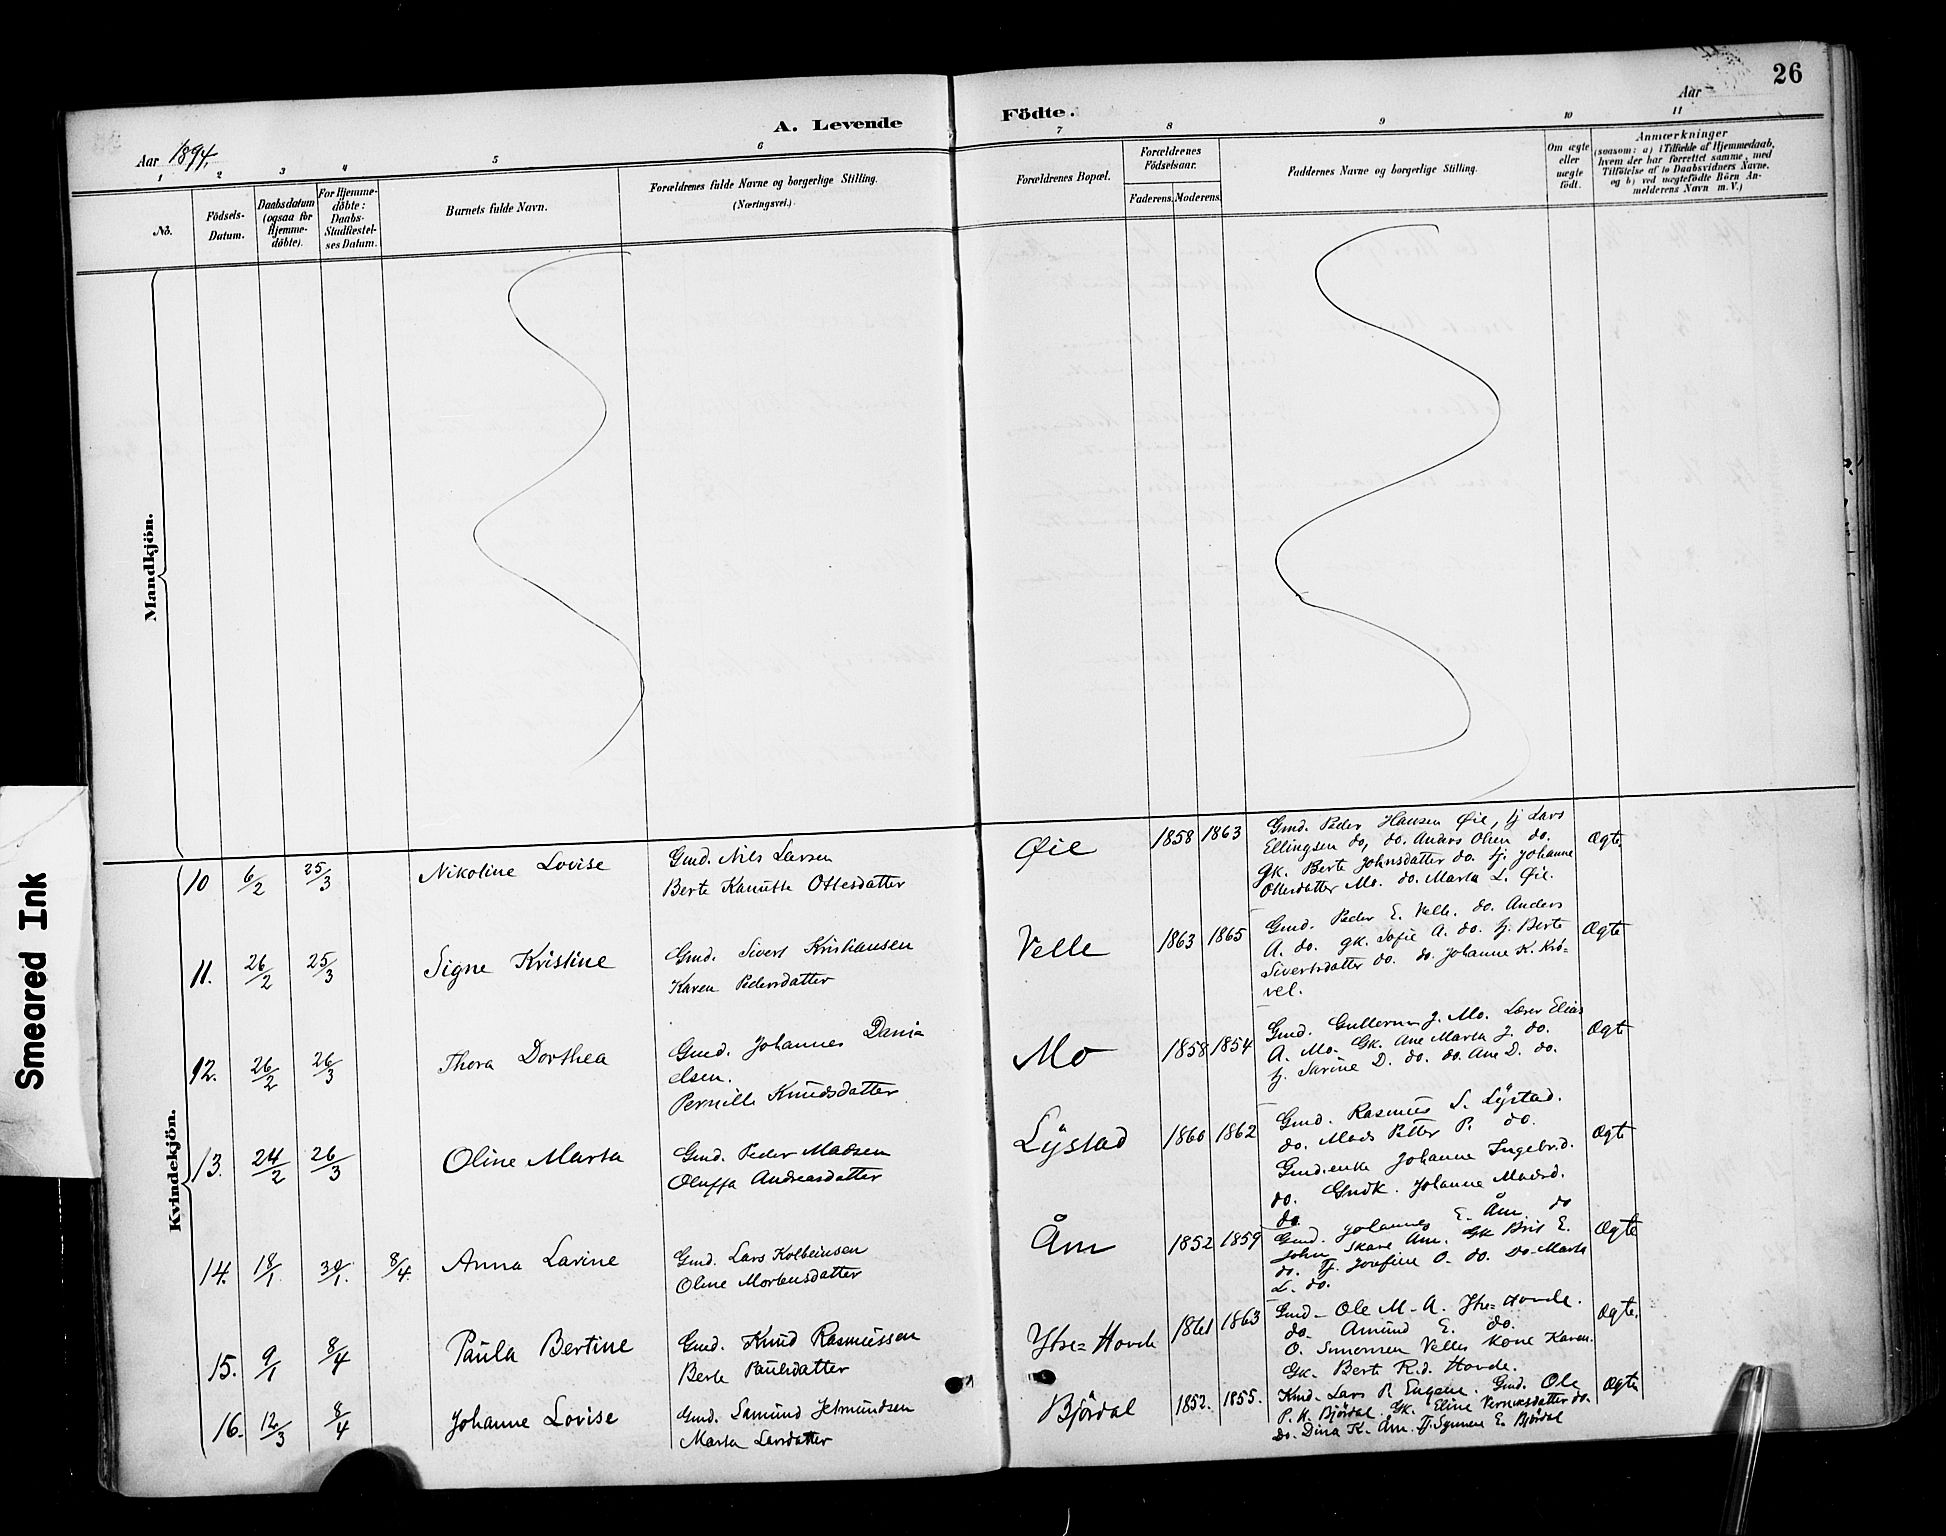 26
A. Levende Födte.
Aar 1894.
Aar
1 2 3 4 5 6 7 8 9 10 11
No.
Födsels-
Datum.
Daabsdatum
(ogsaa for
Hjemme-
döbte).
For Hjemme-
döbte:
Daabs-
Stadfæstel-
ses Datum.
Barnets fulde Navn.
Forældrenes fulde Navne og borgerlige Stilling.
(Næringsvei.)
Forældrenes Bopæl.
Forældrenes
Födselsaar.
Faderens. Moderens.
Faddernes Navne og borgerlige Stilling.
Om ægte
eller
uægte
födt.
Anmærkninger
(saasom: a) i Tilfælde af Hjemmedaab,
hvem der har forrettet samme, med
Tilföielse af to Daabsvidners Navne.
og b) ved uægtefödte Börn An-
melderens Navn m. V.)
Mandkjön.
Kvindekjön.
Smeared Ink
10 6/2 25/3 Nikoline Lovise
Gmd. Nils Larsen
Berte Kanutte Ottesdatter
Øie 1858 1863
Gmd. Peder Hansen Øie, tj Lars
Ellingsen do, do. Anders Olsen do.
gk. Berte Johnsdatter do. tj. Johanne
Ottesdatter Mo. do. Marta L. Øie.
Ægte.
11. 26/2 25/3 Signe Kristine
Gmd. Sivert Kristiansen
Karen Pedersdatter
Velle 1863 1865
Gmd. Peder E. Velle. do. Anders
A. do. gk. Sofie A. do. tj. Berte
Sivertsdatter do. do. Johanne K. Krö-
vel.
Ægte
12. 26/2 26/3 Thora Dorthea
Gmd. Johannes Dani
elsen.
Pernille Knudsdatter
Mo 1858 1854
Gmd. Guttorm J. Mo. Lærer Elias
A. Mo. Gk. Ane Marta J. do.
tj. Sarine D. do. do. Ane D. do.
Ægt
13. 24/2 26/3 Oline Marta
Gmd. Peder Madsen
Oluffa Andreasdatter
Lÿstad 1860 1862
Gmd. Rasmus S. Lÿstad.
do. Mads Petter P. do.
Gmd.enke Johanne Ingebr.d.
do. Gmdk. Johanne Madsd.
do.
Ægte
14. 18/1. 30/1. 8/4. Anna Larine
Gmd. Lars Kolbeinsen
Oline Mortensdatter
Åm 1852 1859
Gmd. Johannes E. Åm. do
John Skare Åm. Gk Brit E.
do. Tj. Josefine O. do. Do. Marta
L. do.
Ægte
15. 9/1 8/4 Paula Bertine
Gmd. Knud Rasmussen
Berte Paulsdatter
Ytre-Hovde 1861 1863
Gmd. Ole M. A. Ytre-Hovde.
do. Amund E. do.
O. Simonsen Velles Kone Karen.
Gk. Bert R.d. Hovde.
Ægte.
16. 12/3 8/4 Johanne Lovise
Gmd. Samund Jetmundsen
Marta Larsdatter
Björdal 1852. 1855.
Gmd. Lars R. Gmd. Ole
P. H. Björdal. Gk. Eline do.
Do. Dina K. Åm. Tj. Synnve E. Björdal
Ægte